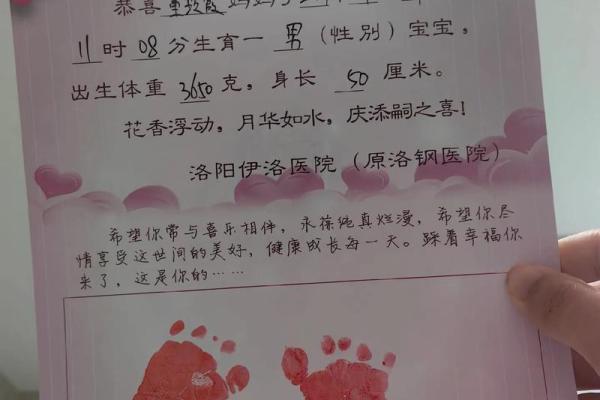 恭喜 妈妈于
11 时 08 分生育一 男 (性别) 宝宝,
出生体重 3650 克, 身长 50 厘米。
花香浮动, 月华如水, 庆添嗣之喜!
洛阳伊洛医院 (原洛钢医院)
希望你常与喜乐相伴, 永葆纯真烂漫, 希望你尽
情享受这世间的美好, 健康成长每一天。踩着幸福你
来了, 这是你的……